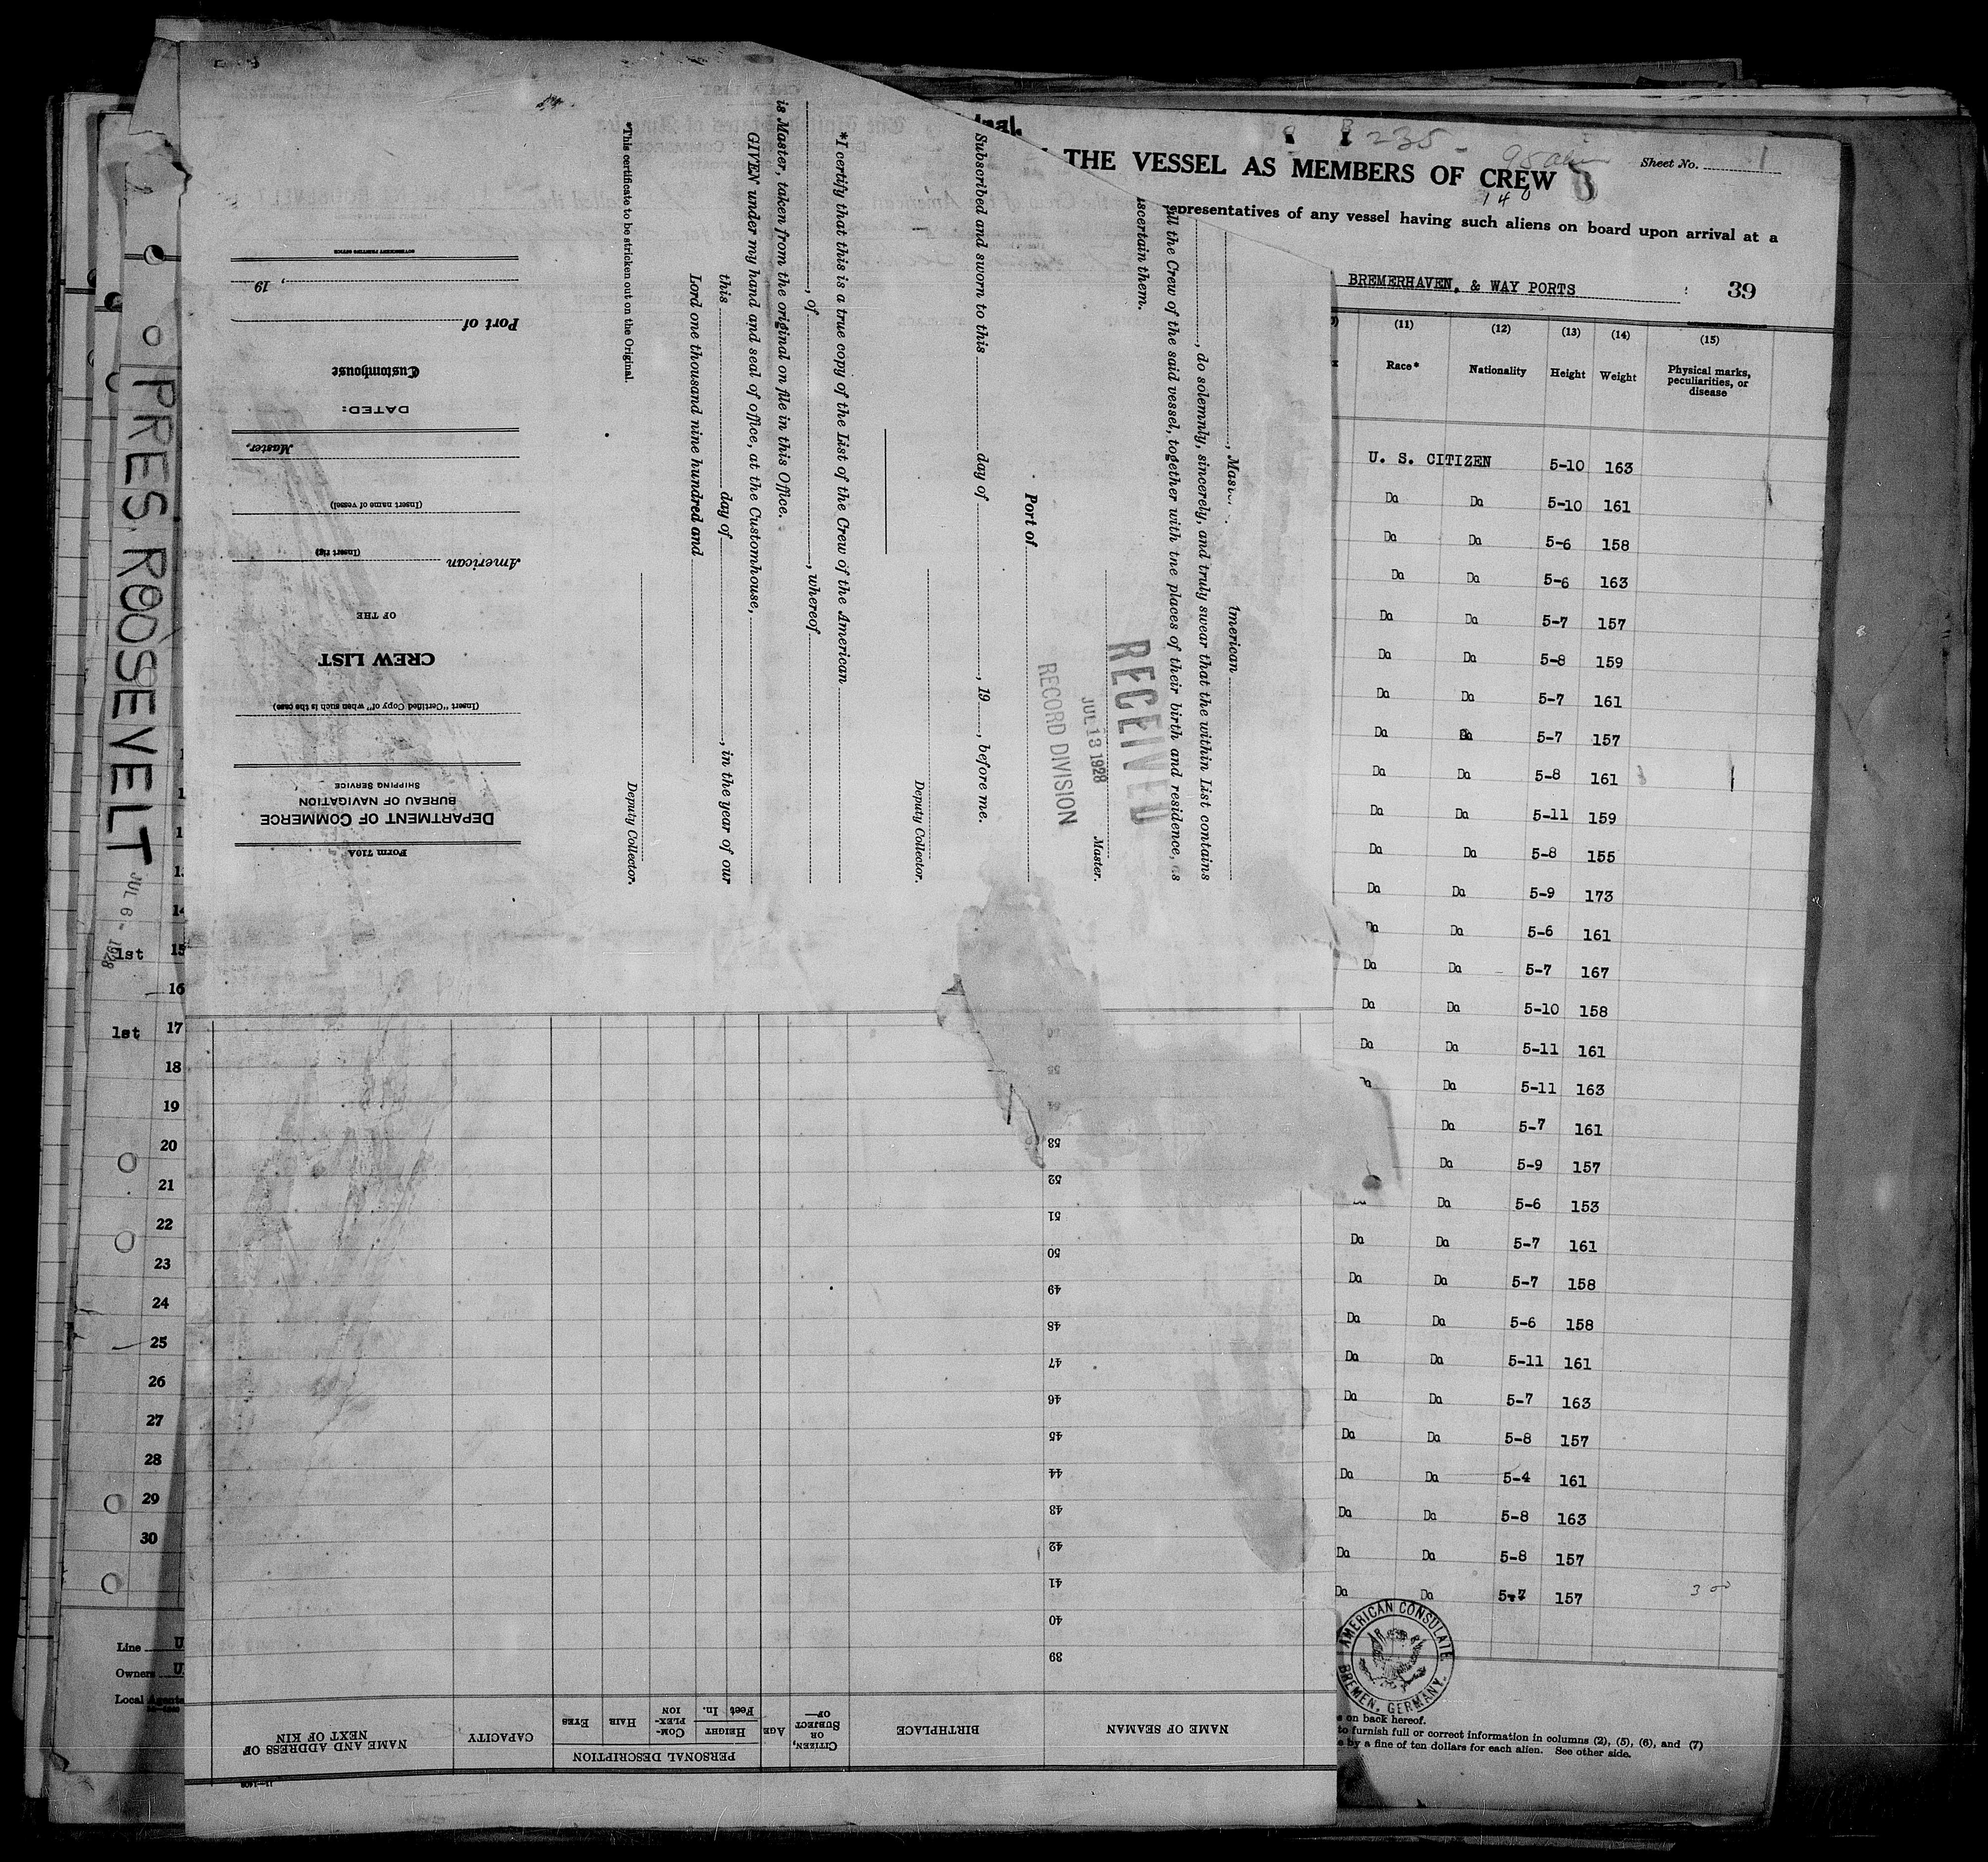 PRES. ROOSEVELT
JUL 6 - 1928
1st
1st
14
15
16
17
18
19
20
21
22
23
24
25
26
27
28
29
30
Line
Owners
Local Agents
235 -
Sheet No. 1
THE VESSEL AS MEMBERS OF CREW
140
representatives of any vessel having such aliens on board upon arrival at a
BREMERHAVEN, & WAY PORTS
39
(11) (12) (13) (14) (15)
Race* Nationality Height Weight Physical marks, peculiarities, or disease
U. S. CITIZEN 5-10 163
Da Da 5-10 161
Da Da 5-6 158
Da Da 5-6 163
Da Da 5-7 157
Da Da 5-8 159
Da Da 5-7 161
Da Da 5-7 157
Da Da 5-8 161
Da Da 5-11 159
Da Da 5-8 155
Da Da 5-9 173
Da Da 5-6 161
Da Da 5-7 167
Da Da 5-10 158
Da Da 5-11 161
Da Da 5-11 163
Da 5-7 161
Da 5-9 157
Da 5-6 153
Da Da 5-7 161
Da Da 5-7 158
Da Da 5-6 158
Da Da 5-11 161
Da Da 5-7 163
Da Da 5-8 157
Da Da 5-4 161
Da Da 5-8 163
Da Da 5-8 157
Da Da 5-7 157
AMERICAN CONSULATE
BREMEN, GERMANY.
on back hereof.
to furnish full or correct information in columns (2), (5), (6), and (7)
by a fine of ten dollars for each alien. See other side.
, Master
American
, do solemnly, sincerely, and truly swear that the within List contains
all the Crew of the said vessel, together with the places of their birth and residence, as
ascertain them.
RECEIVED
JUL 13 1928
RECORD DIVISION
Master.
Port of
Subscribed and sworn to this day of , 19 , before me.
Deputy Collector.
*I certify that this is a true copy of the List of the Crew of the American
, of , whereof
is Master, taken from the original on file in this Office.
GIVEN under my hand and seal of office, at the Customhouse,
this day of , in the year of our
Lord one thousand nine hundred and
Deputy Collector.
*This certificate to be stricken out on the Original.
Form 710A
DEPARTMENT OF COMMERCE
BUREAU OF NAVIGATION
SHIPPING SERVICE
(Insert "Certified Copy of" when such is the case)
CREW LIST
OF THE
American
(Insert rig)
(Insert name of vessel)
Master,
DATED:
Customhouse
Port of
, 19
GOVERNMENT PRINTING OFFICE
NAME OF SEAMAN
BIRTHPLACE
CITIZEN, OR SUBJECT OF—
AGE
PERSONAL DESCRIPTION
HEIGHT
Feet In.
COM-PLEX-ION
HAIR
EYES
CAPACITY
NAME AND ADDRESS OF NEXT OF KIN
39
40
41
42
43
44
45
46
47
48
49
50
51
52
53
54
55